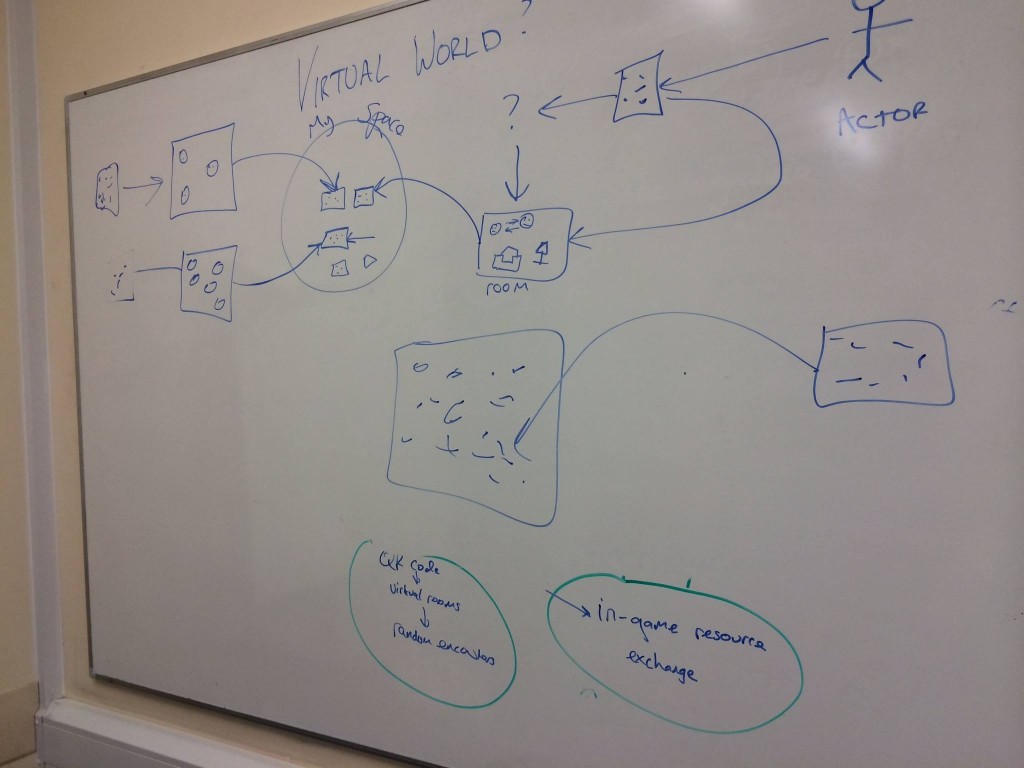 VIRTUAL WORLD?
My Space
?
ACTOR
room
QR code
virtual rooms
random encounters
in-game resource
exchange